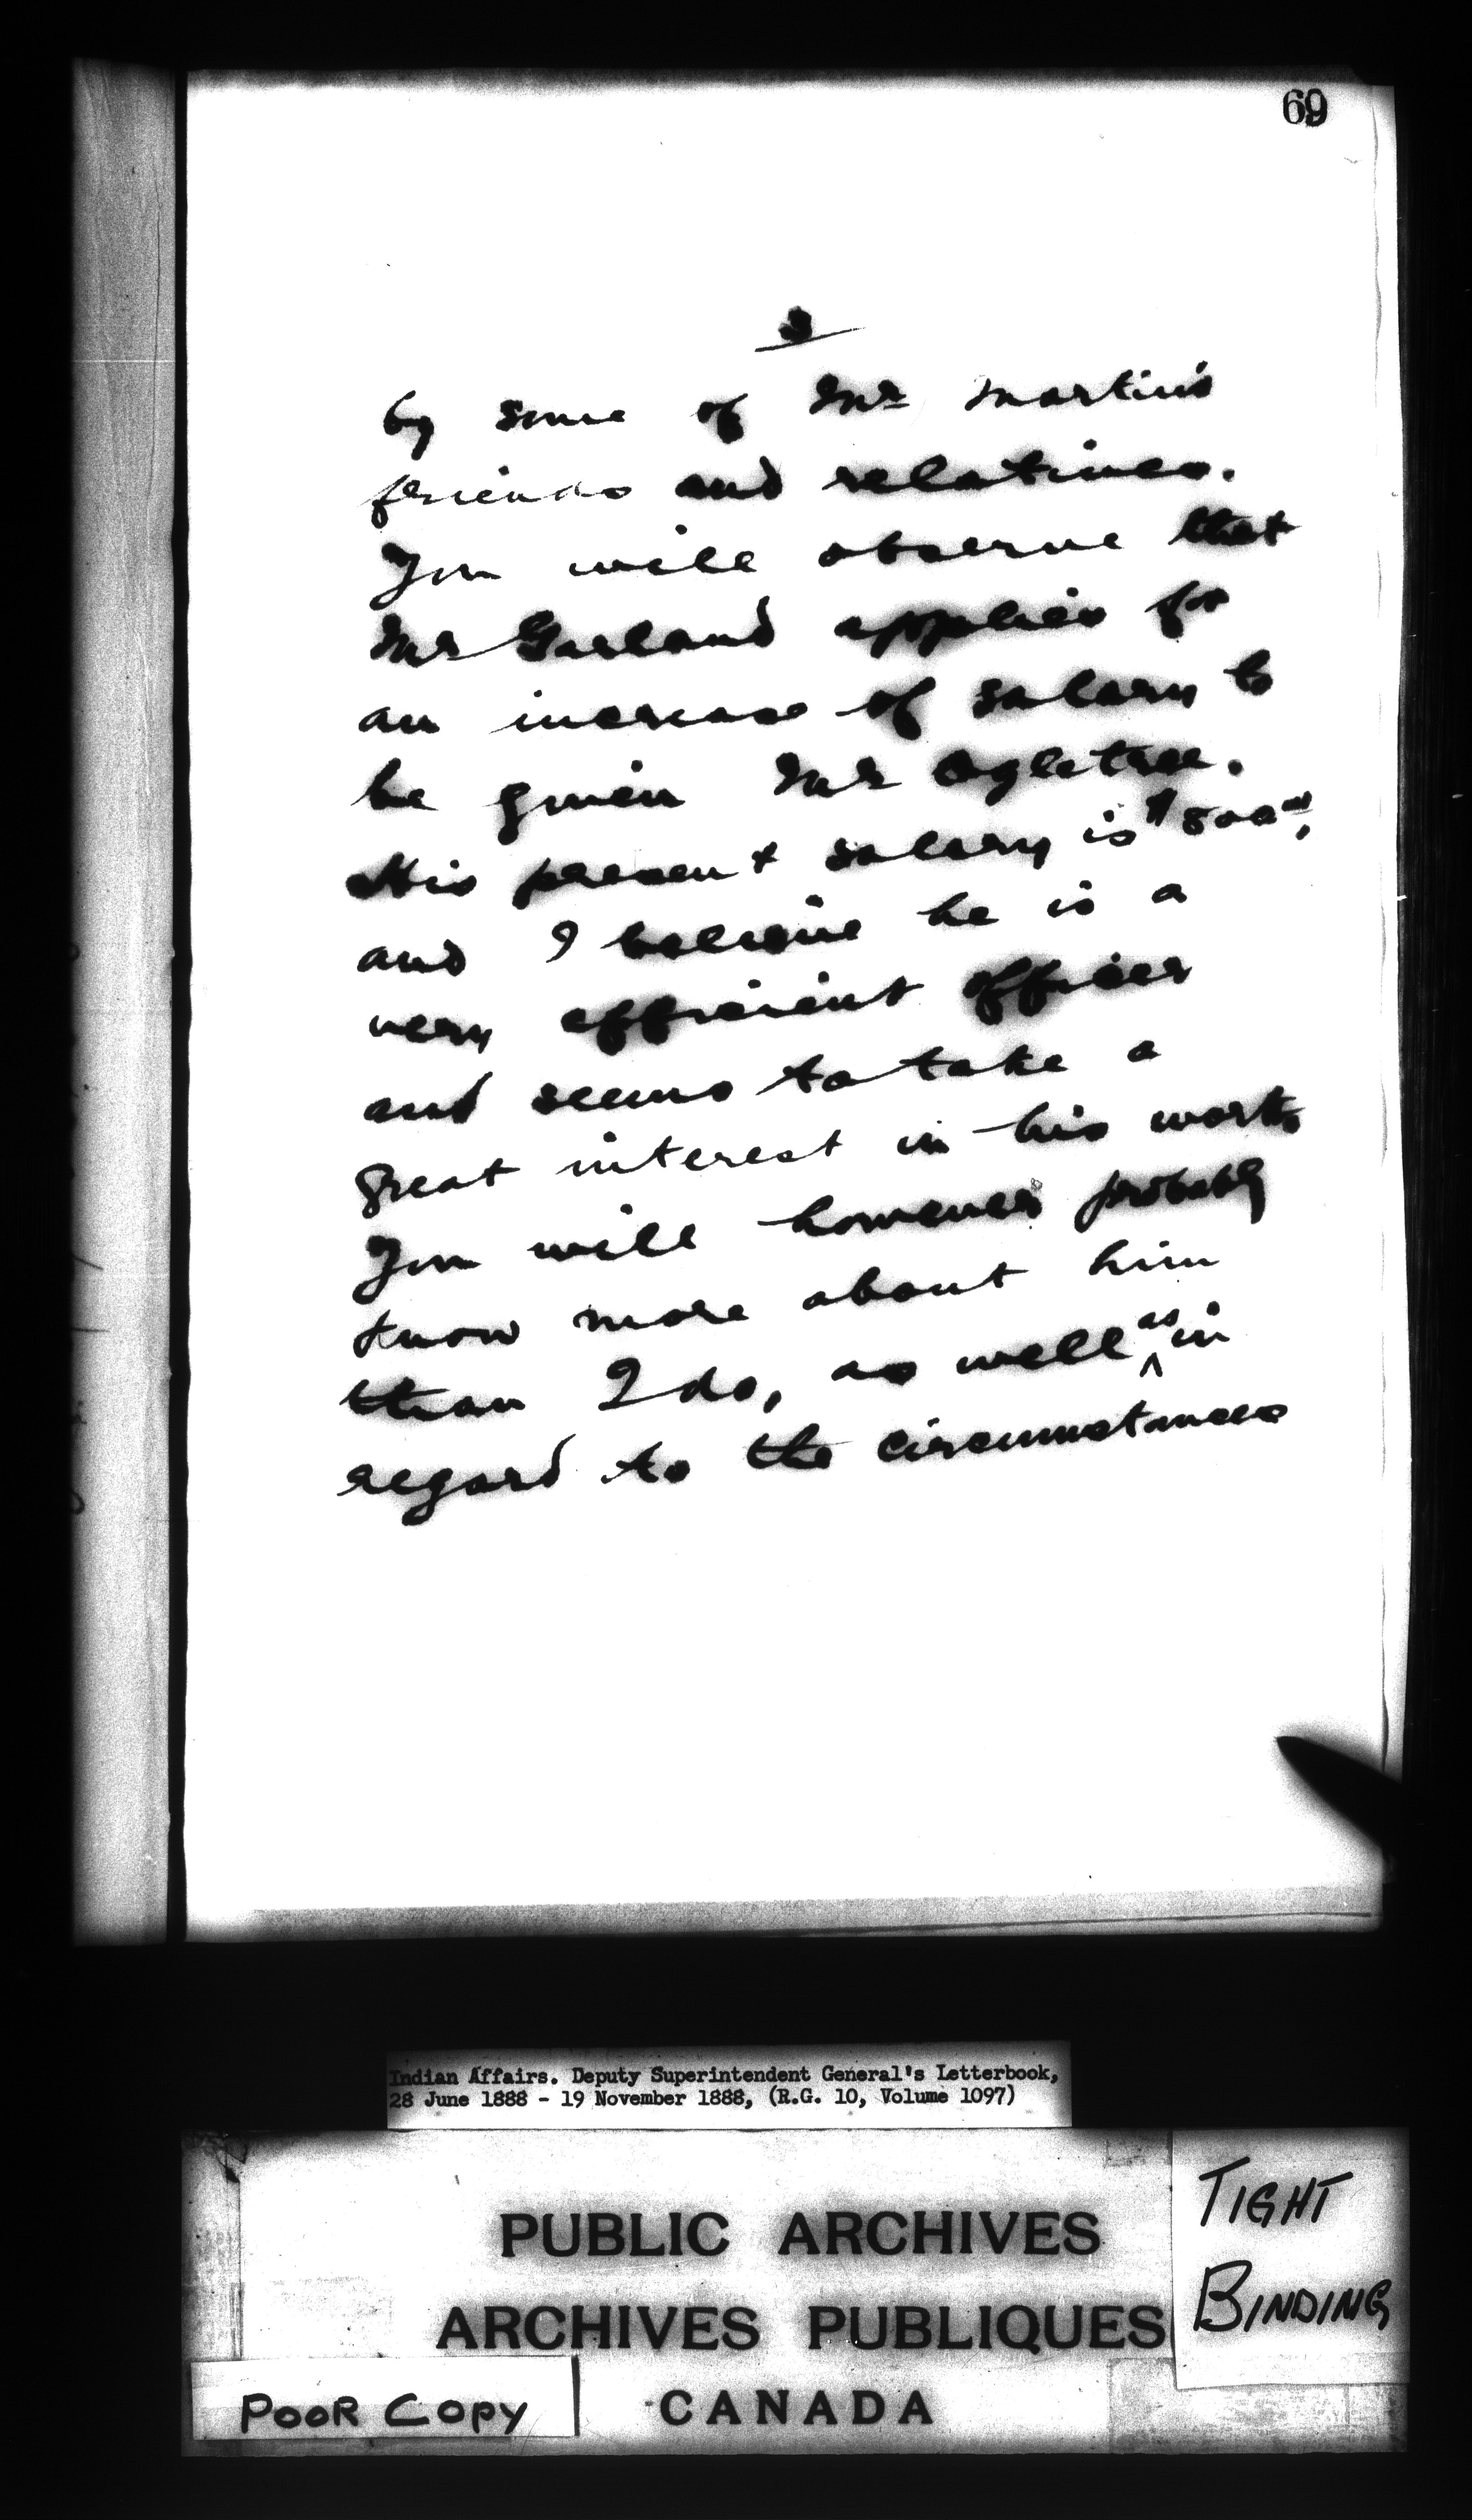 69
3
by some of Mr Martin's
friends and relatives.
You will observe that
Mr Garland applies for
an increase of salary to
be given Mr Ogletree.
His present salary is $800⁰⁰,
and I believe he is a
very efficient officer
and seems to take a
great interest in his work.
You will however probably
know more about him
than I do, as well as in
regard to the circumstances
Indian Affairs. Deputy Superintendent General's Letterbook,
28 June 1888 - 19 November 1888, (R.G. 10, Volume 1097)
TIGHT
BINDING
PUBLIC ARCHIVES
ARCHIVES PUBLIQUES
CANADA
POOR COPY